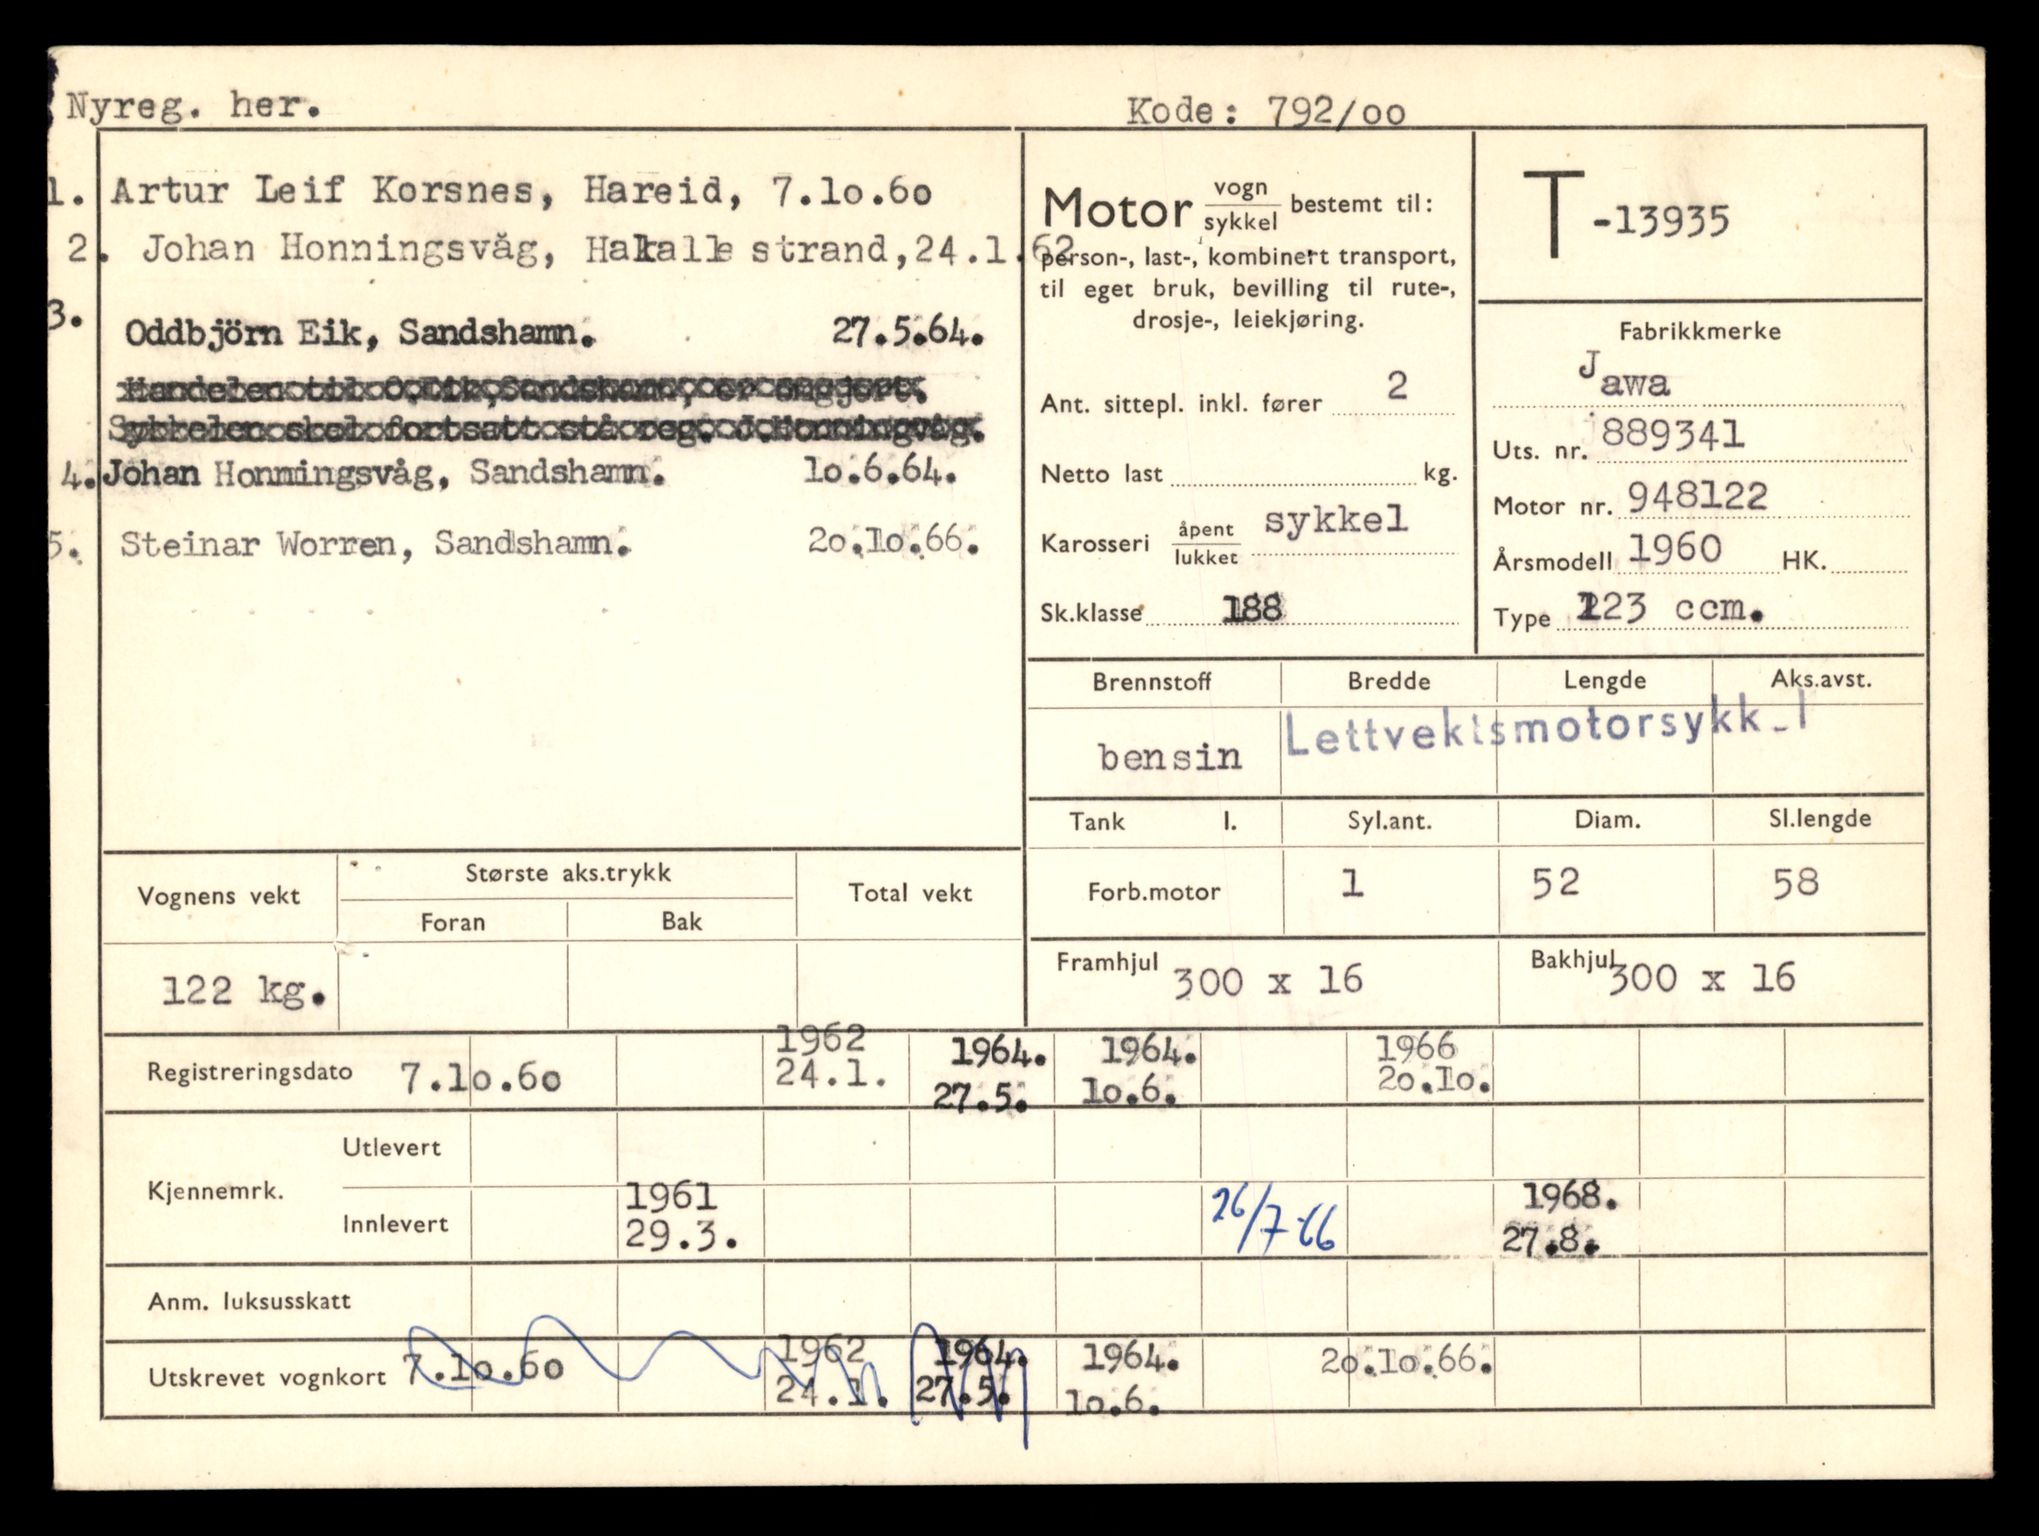 Nyreg. her.
Kode: 792/oo
1. Artur Leif Korsnes, Hareid, 7.lo.6o
2. Johan Honningsvåg, Hakallestrand, 24.1.62
3. Oddbjörn Eik, Sandshamn. 27.5.64.
Handelen til O.Eik, Sandshamn, er omgjort.
Sykkelen skal fortsatt stå reg. J.Honningvåg.
4. Johan Honningsvåg, Sandshamn. lo.6.64.
5. Steinar Worren, Sandshamn. 2o.lo.66.
Motor vogn/sykkel bestemt til:
person-, last-, kombinert transport,
til eget bruk, bevilling til rute-,
drosje-, leiekjøring.
Ant. sittepl. inkl. fører 2
Netto last kg.
Karosseri åpent/lukket sykkel
Sk.klasse 188
T-13935
Fabrikkmerke
Jawa
Uts. nr. 889341
Motor nr. 948122
Årsmodell 1960 HK.
Type 123 ccm.
Brennstoff Bredde Lengde Aks.avst.
bensin Lettvektsmotorsykk_l
Tank l. Syl.ant. Diam. Sl.lengde
Forb.motor 1 52 58
Framhjul 300 x 16 Bakhjul 300 x 16
Vognens vekt Største aks.trykk Total vekt
Foran Bak
122 kg.
Registreringsdato 7.lo.6o 1962 24.1. 1964. 27.5. 1964. lo.6. 1966 2o.lo.
Kjennemrk.
Utlevert
Innlevert 1961 29.3. 26/7-66 1968. 27.8.
Anm. luksusskatt
Utskrevet vognkort 7.lo.6o 1962 24.1. 1964. 27.5. 1964. lo.6. 2o.lo.66.